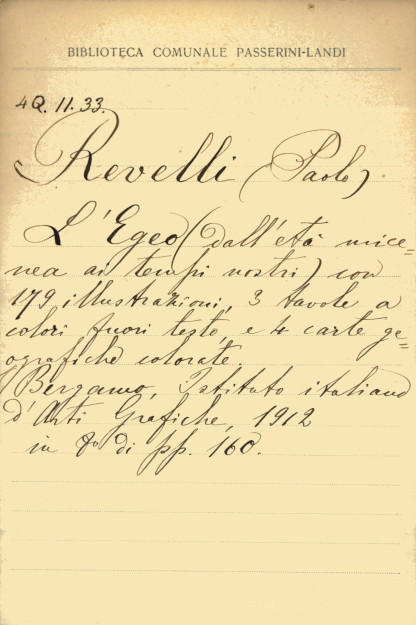 BIBLIOTECA COMUNALE PASSERINI-LANDI
4Q. 11. 33.
Revelli (Paolo)
L'Egeo (dall'età mice=
nea ai tempi nostri) con
179 illustrazioni, 3 tavole a
colori fuori testo, e 4 carte ge=
ografiche colorate.
Bergamo, Istituto italiano
d'Arti Grafiche, 1912
in 8º di pp. 160.